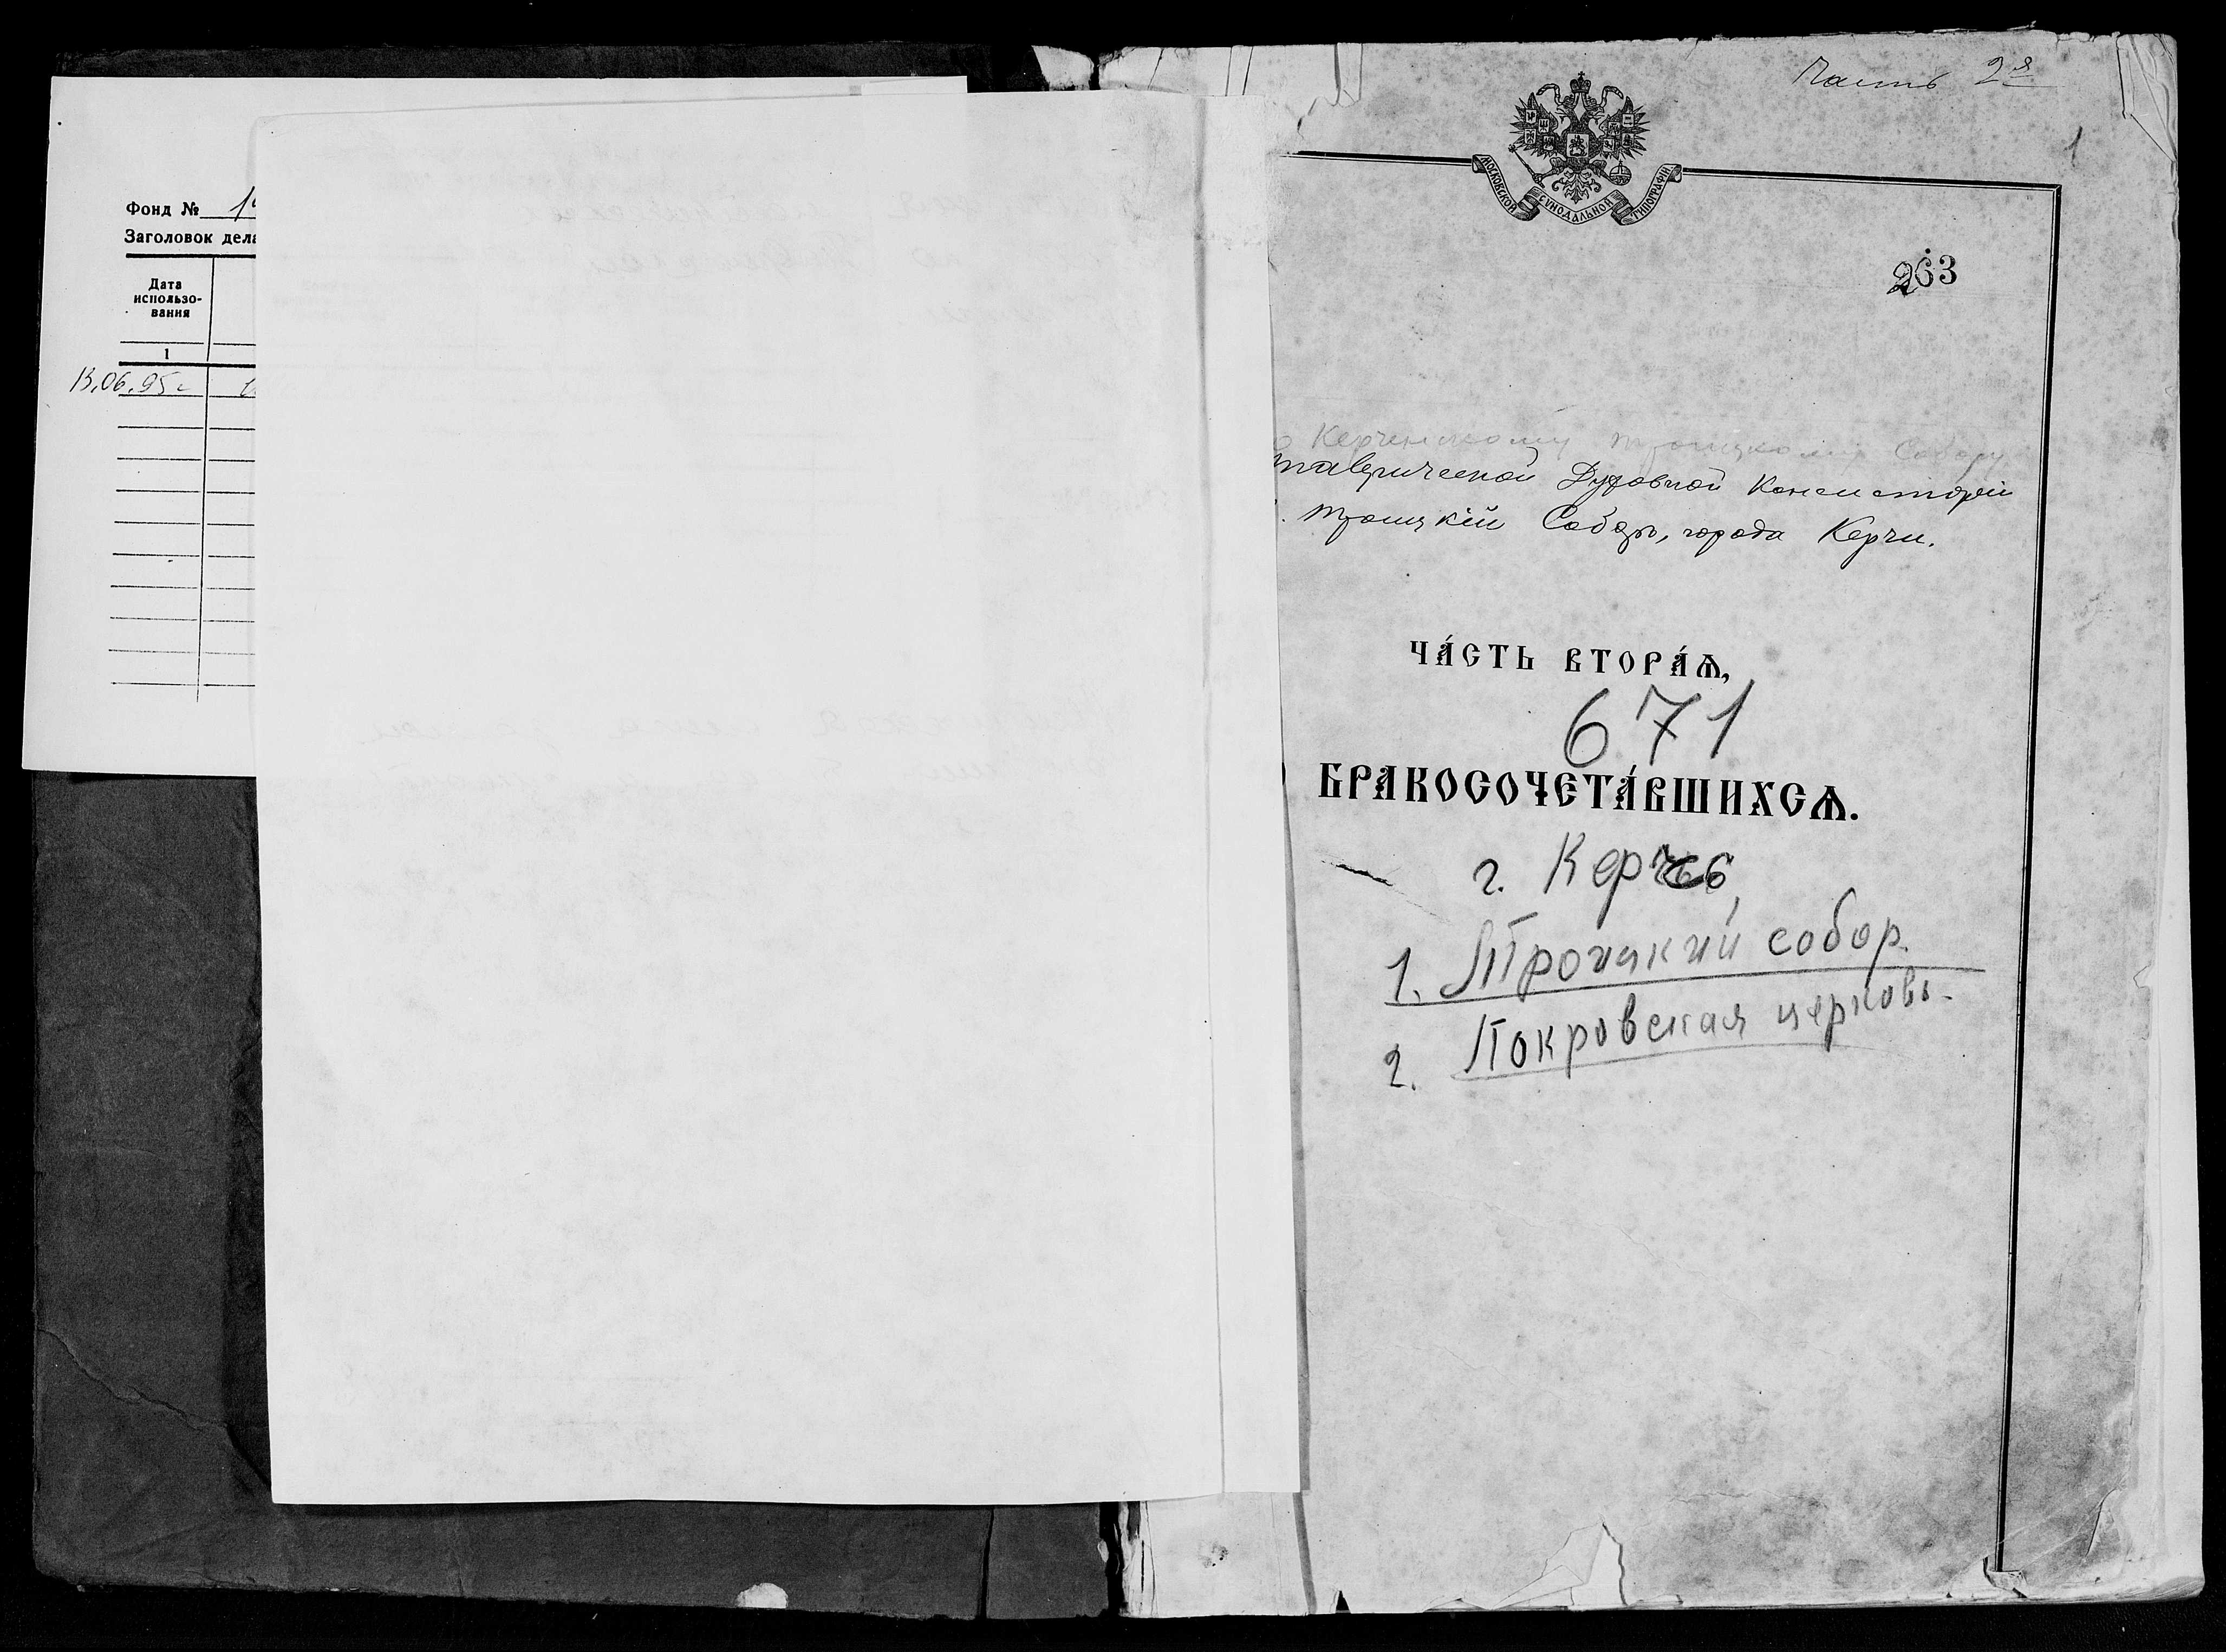 Фонд №
Заголовок дела
Дата
использо-
вания
1
13.06.95г
Часть 2я
1
МОСКОВСКОЙ СѴНОДАЛЬНОЙ ТИПОГРАФІИ
263
Керченскому Троицкому Собору
Таврической Духовной Консисторіи
Троицкій Соборъ, города Керчи.
ЧА́СТЬ ВТОРА́Ѧ,
671
БРАКОСОЧЕТА́ВШИХСѦ.
г. Керчь,
1. Троицкий собор.
2. Покровская церковь.